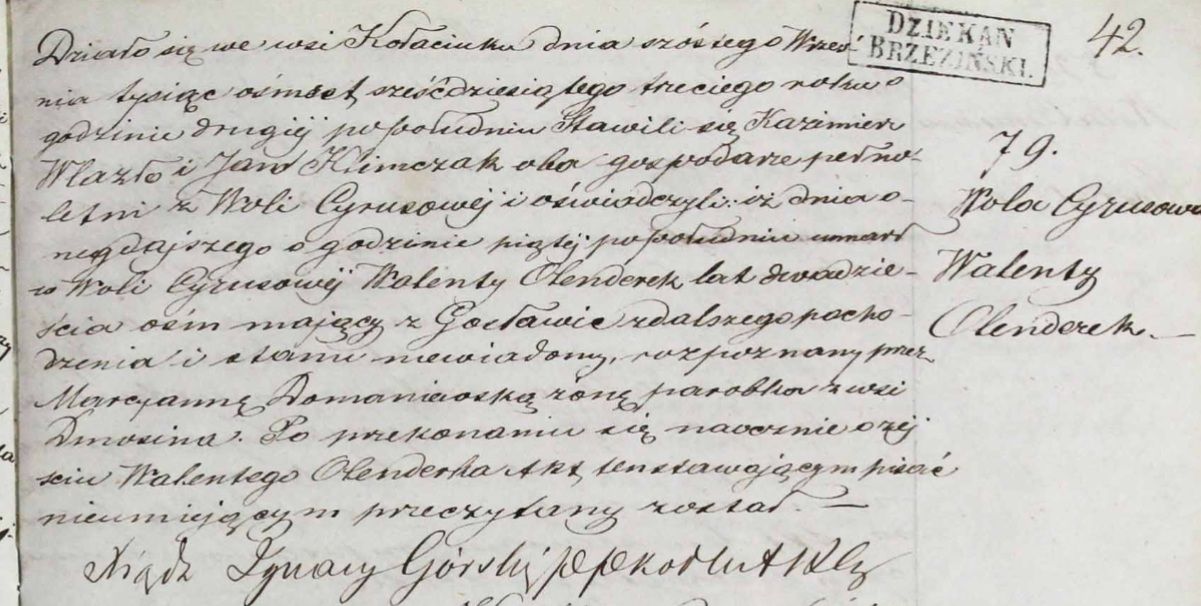 DZIEKAN
BRZEZIŃSKI.
42.
79.
Wola Cyrusowa
Walenty
Olenderek. —
Działo się we wsi Kołaciuku dnia szóstego Wrześ-
nia tysiąc ośmset sześćdziesiątego trzeciego roku o
godzinie drugiéj popołudniu Stawili się Kazimierz
Wlazło i Jan Klimczak oba gospodarze pełno-
letni z Woli Cyrusowéj i oświadczyli: iż dnia o-
negdajszego o godzinie piątéj popołudniu umarł
w Woli Cyrusowéj Walenty Olenderek lat dwadzie-
ścia ośm mający z Gocławic z dalszego pocho-
dzenia i stanu niewiadomy, rozpoznany przez
Marcyannę Domaniewską żonę parobka z wsi
Dmosina. Po przekonaniu się naocznie o zej
ściu Walentego Olenderka Akt ten stawającym pisać
nieumiejącym przeczytany został. —
Xiądz Ignacy Górski